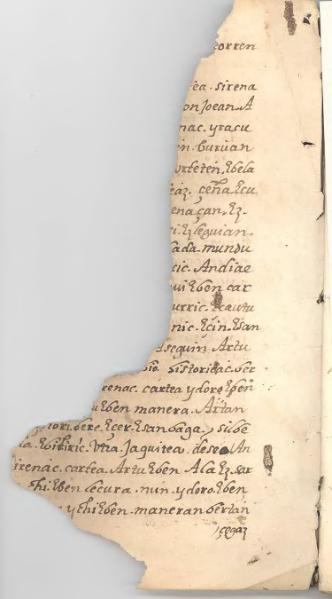 orren
ea. sirena
on Joean. A
nac. yracu
n. buruan
orteten. Ebela
eaz. ceña. Ecu
enaçan. Ez.
ri. Ezleguian.
ada. mundu
cic. Andiae
ui Eben car
urric. Ecautu
nic. Eçin. Esan
Aseguin. Artu
historiac. ber
renac. cartea. ydoro. Eben
Eben manera. Artan
tori. bere. Ecer. Esanbaga. sube
la. Ebiliric. Vña. Jaquitea. deseo. An
irenac. cartea. Artu Eben. Ala Ez. bar
Eben lecura. nun. ydoro. Eben
ychi Eben. maneran. bertan
cegaz